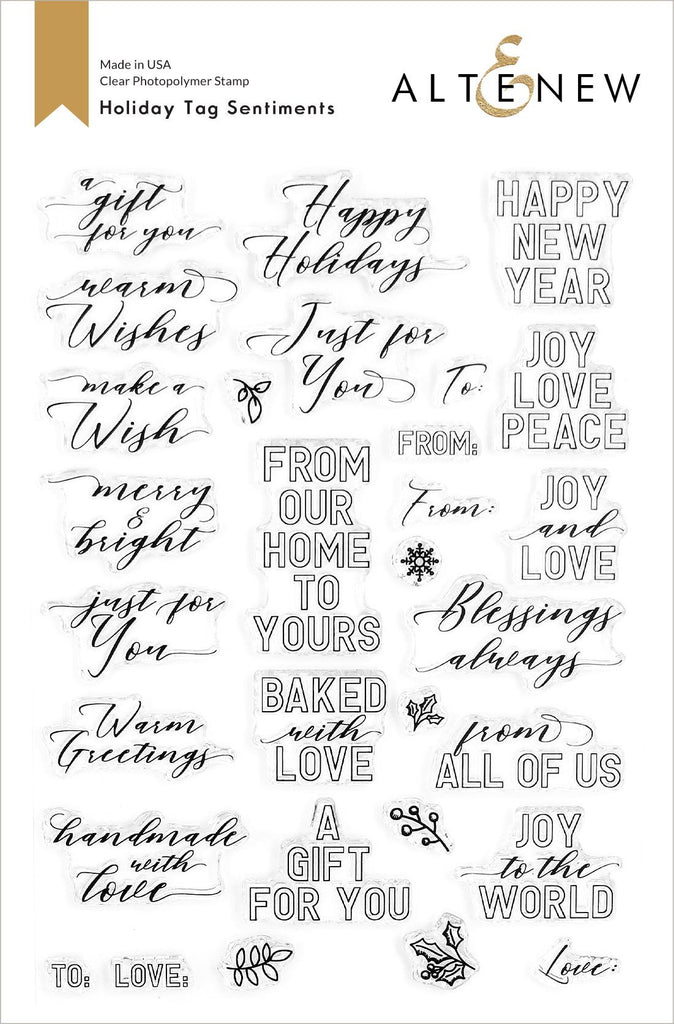 Made in USA
Clear Photopolymer Stamp
Holiday Tag Sentiments
ALTENEW
a
gift
for you
warm
Wishes
make a
Wish
merry
&
bright
just for
You
Warm
Greetings
handmade
with
love
TO:
LOVE:
Happy
Holidays
Just for
You
To:
FROM:
From:
FROM
OUR
HOME
TO
YOURS
BAKED
with
LOVE
A
GIFT
FOR YOU
HAPPY
NEW
YEAR
JOY
LOVE
PEACE
JOY
and
LOVE
Blessings
always
from
ALL OF US
JOY
to the
WORLD
Love: